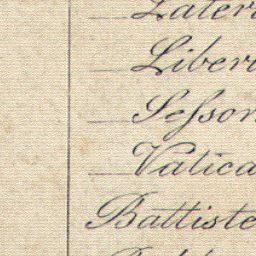 Later
Liber
Seſsor
Vatica
Battiste